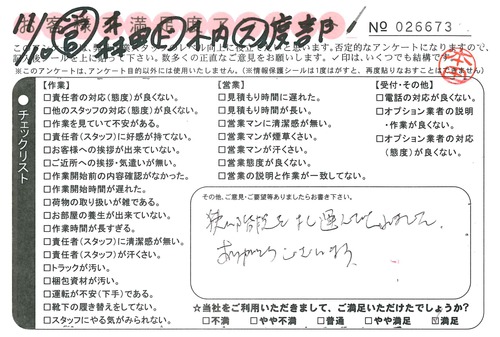 № 026673
否定的なアンケートになりますので、
ご記入後シールを上に貼って下さい。数多くの正直なご意見をお願いします。✓印は、いくつでも結構です。
※このアンケートは、アンケート目的以外には使用いたしません。(※情報保護シールは1度はがすと、再度貼りなおすことはできません)
チェックリスト
【作業】
□責任者の対応(態度)が良くない。
□他のスタッフの対応(態度)が良くない。
□作業を見ていて不安がある。
□責任者(スタッフ)に好感が持てない。
□お客様への挨拶が出来ていない。
□ご近所への挨拶・気遣いが無い。
□作業開始前の内容確認がなかった。
□作業開始時間が遅れた。
□荷物の取り扱いが雑である。
□お部屋の養生が出来ていない。
□作業時間が長すぎる。
□責任者(スタッフ)に清潔感が無い。
□責任者(スタッフ)が汗くさい。
□トラックが汚い。
□梱包資材が汚い。
□運転が不安(下手)である。
□靴下の履き替えをしてない。
□スタッフにやる気がみられない。
【営業】
□見積もり時間に遅れた。
□見積もり時間が長い。
□営業マンに清潔感が無い。
□営業マンが煙草くさい。
□営業マンが汗くさい。
□営業態度が良くない。
□営業の説明と作業が一致してない。
【受付・その他】
□電話の対応が良くない。
□オプション業者の説明
・作業が良くない。
□オプション業者の対応
(態度)が良くない。
その他、ご意見・ご要望等ありましたらお書き下さい。
狭い階段を
運んでくれました
ありがとうございます
☆当社をご利用いただきまして、ご満足いただけたでしょうか?
□不満 □やや不満 □普通 □やや満足 ☑満足